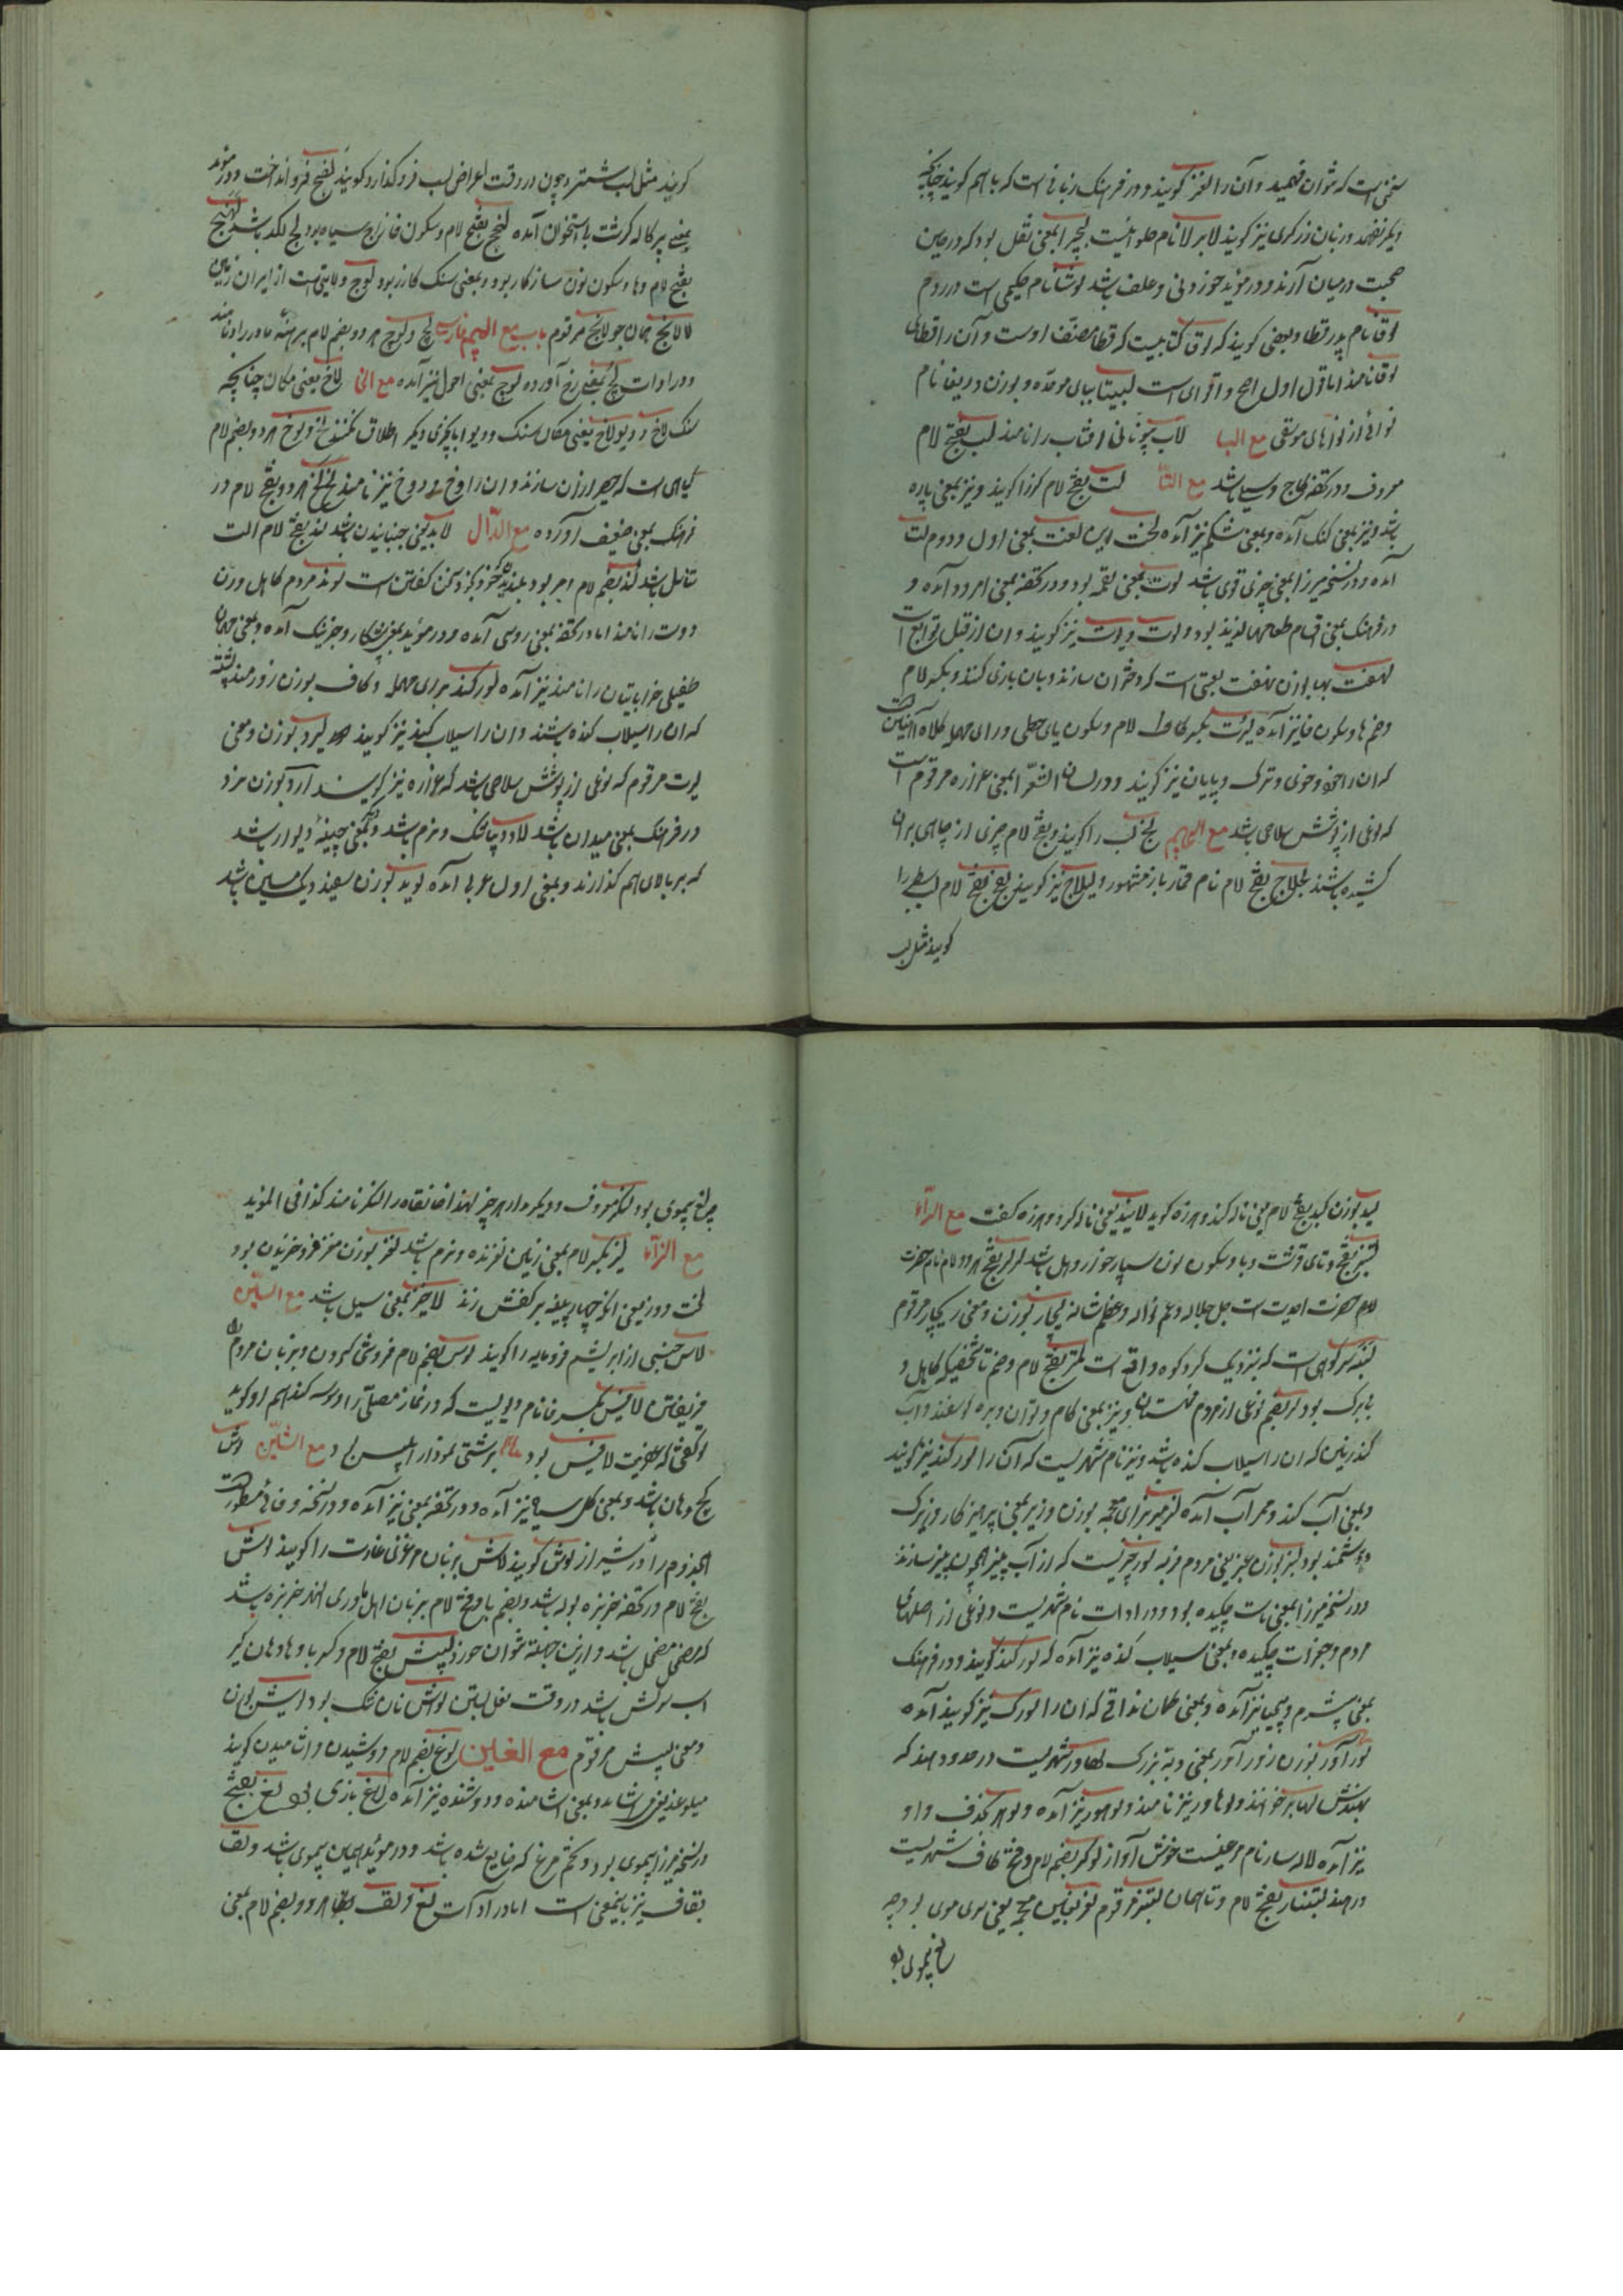 سخنی است که نتوان فهمید و آن را لغز گویند و در فرهنگ زبانی است که با هم گویند چنانچه
دیگر نفهمد و زبان زرگری نیز گویند لابرلا نام حلوائیست بمعنی نقل بود که در حین
صحبت در میان آرند و در مؤید خوردنی و علف باشد لوشا نام حکیمی است در روم
لوقا نام پدر قطا و بعضی گویند که لوقا کتابیست که قطا مصنف اوست و آن را قطای
لوقا نامند اما قول اول اصح و اقوی است لبیتا ببای موحده و بوزن دریغا نام
نوائی از نواهای موسیقی مع البا لاب یونانی آفتاب را نامند لب بفتح لام
معروف و در تحفه کاج و سیلی باشد مع التا لت بفتح لام گرز را گویند و نیز بمعنی پاره
باشد و نیز بمعنی کتک آمده و بمعنی شکم نیز آمده لخت این لغت بمعنی اول و دوم لت
آمده و در نسخه میرزا بمعنی چیزی قوی باشد لوت بمعنی لقمه بود و در تحفه بمعنی امرد آمده و
در فرهنگ بمعنی اقسام طعامهای لذیذ بود و لوت و پوت نیز گویند و آن از قبیل توابع است
لهفت بها بوزن نهفت لعبتی است که دختران سازند و بان بازی کنند و بکسر لام
و ضم ها و سکون فا نیز آمده لیرت بکسر لام و سکون یای حطی و رای مهمله کلاه آهنین است
که آن را خود و خوی و ترک نیز گویند و در لسان الشعرا بمعنی مرقوم است
که نوعی از پوشش سلاحی باشد مع الجیم لج لب را گویند و بفتح لام چیزی از جاهی بران
کشیده باشند لجلاج بفتح لام نام قمارباز مشهور و لیلاج نیز گویند لفج بفتح لام لب سطبر را
گویند مثل لب
گویند مثل لب شتر و چون در وقت اعراض لب فرو گذارد گویند لفج فرو انداخت و در مؤید
بمعنی پرکاله گوشت با استخوان آمده لنج بفتح لام و سکون فا زاج سیاه بود لج لگد باشد لهنج
بفتح لام و ها و سکون نون ساز کار بود و بمعنی سنگ گازر بود لوج ولایتی است از ایران زمین
لالانج همان جولانج مرقوم باب مع الجیم فارسیه لچ و لوچ هر دو بضم لام برهنه مادرزاد نامند
و در ادات لچ بمعنی رخ آورده لوچ بمعنی احول نیز آمده مع الخا لاخ یعنی مکان چنانچه
سنگ لاخ و دیولاخ یعنی مکان سنگ و دیو اما بچیزی دیگر اطلاق نکنند لخ و لوخ هر دو بضم لام
گیاهی است که حصیر از آن سازند و آن را و دوخ نیز نامند لخ لخ هر دو بفتح لام در
فرهنگ بمعنی ضعیف آورده مع الدال لاد یعنی جنبانیدن باشد لند بفتح لام الت
تناسل باشد لند بضم لام امر بود بلندیدن خود بخود سخن گفتن است لوند مردم کاهل و زن
دوست را نامند اما در تحفه بمعنی روسی آمده و در مؤید بمعنی پیشکار و چیزیک آمده و بمعنی مهمان
طفیلی خراباتیان را نامند نیز آمده لورکند برای مهمله و کاف بوزن زورمند پشته
که آن را سیلاب کنده باشند و آن را سیلاب کند نیز گویند لیرد بوزن و معنی
لیرت مرقوم که نوعی از پوشش سلاحی باشد که نیز گویند آرد بوزن مزد
در فرهنگ بمعنی میدان باشد لاد دیبای تنک و نرم باشد و بمعنی چینه دیوار باشد
که بر بالای هم گذارند و بمعنی اول عربی آمده لوید بوزن سعید دیگ مسین باشد
لید بوزن کید بفتح لام یعنی ناله کند و هرزه گوید لایید یعنی ناله کرد و هرزه گفت مع الرا
لتنبر بفتح و تای قرشت و با و سکون نون بسیار خوار و اهل باشد لرلر بفتح هر دو لام نام حضرت
حضرت احدیت است جل جلاله و عم نواله و عظم شانه لیچار بوزن و معنی ریچار مرقوم
کوهی است که نزدیک کرد کوه واقع است لمتر بفتح لام و ضم تا شخصی که کاهل و
بابرک بود لر بضم نوعی از مردم قهستان و نیز بمعنی کام و توان و بره گوسفند و آب
کند زمین که آن را سیلاب کنده باشد و نیز نام شهریست که آن را لورکند نیز گویند
و بمعنی آب کند و ممر آب آمده لزیر برای معجمه بوزن وزیر بمعنی پرهیزکار و زیرک
و هوشمند بود لبر بوزن یعنی مردم فربه لور چیزیست که از آب پنیر همچون پنیر سازند
و در نسخه میرزا بمعنی ماست چکیده بود و در ادات نام شهریست و نوعی از اصلهای
مردم و جغرات چکیده و بمعنی سیلاب کنده نیز آمده که لورکند گویند و در فرهنگ
بمعنی بیشرم و بیحیا نیز آمده و بمعنی کمان ندافی که آن را لورک نیز گویند آمده
لورآور بوزن زورآور بمعنی دبه بزرگ لهاور شهریست در حدود هند که
بهندش لهابر خوانند و لوهاور نیز نامند و لوهور نیز آمده و لوهر بحذف واو
نیز آمده لالسار نام مرغیست خوش آواز لوکر بضم لام و فتح کاف شهریست
در هند لتنبار بفتح لام و تا همان لتنبر مرقوم لغر بغین معجمه یعنی سری موی بود چه
لغ بیموی بو
چه لغ بیموی بود لنگر معروف و دیگر مدار هر چیز لهذا خانقاه را لنگر نامند کذا فی المؤید
مع الزا لیز بکسر لام بمعنی زمین لغزنده و نرم باشد لغز بوزن مغز خزیدن بود
لخت دوز یعنی آنکه چهار پینه بر کفش زند لاخیز بمعنی سیل باشد مع السین
لاس جنسی از ابریشم فرومایه را گویند لوس بضم لام فروتنی کردن و بزبان مردم را
فریفتن لاقیس بکسر قاف نام دیویست که در نماز مصلی را وسوسه کند هم او گوید
تو گفتی که عفریت لاقیس بود بزشتی نمودار ابلیس بود مع الشین لوش
کج دهان باشد و بمعنی گل سیاه نیز آمده و در تحفه بمعنی نیز آمده و در نسخه وفائی مسطور است
مجذوم را در شیراز لوش گویند لاش بزبان مرغزی غارت را گویند لوش
بفتح لام در تحفه خربزه بود باشد و بضم با و فتح لام بزبان اهل ماوری النهر خربزه باشد
که مضمحل باشد و ازین جهت نتوان خورد لپیش بفتح لام و کسر با و ها دهان گیر
اسب سرکش باشد در وقت نعل بستن لواش نان تنک بود لویش بوزن
و معنی لبیش مرقوم مع الغین لوغ بضم لام دوشیدن و آشامیدن گویند
میلوغد یعنی می آشامد و بمعنی آشامنده و دوشنده نیز آمده لاغ بازی بود لغ بفتح
در نسخه میرزا بیموی بود و تخم مرغ که ضایع شده باشد و در مؤید همان بیموی باشد و لق
بقاف نیز باینمعنی است اما در ادات لغ و لق هر دو بضم لام بمعنی